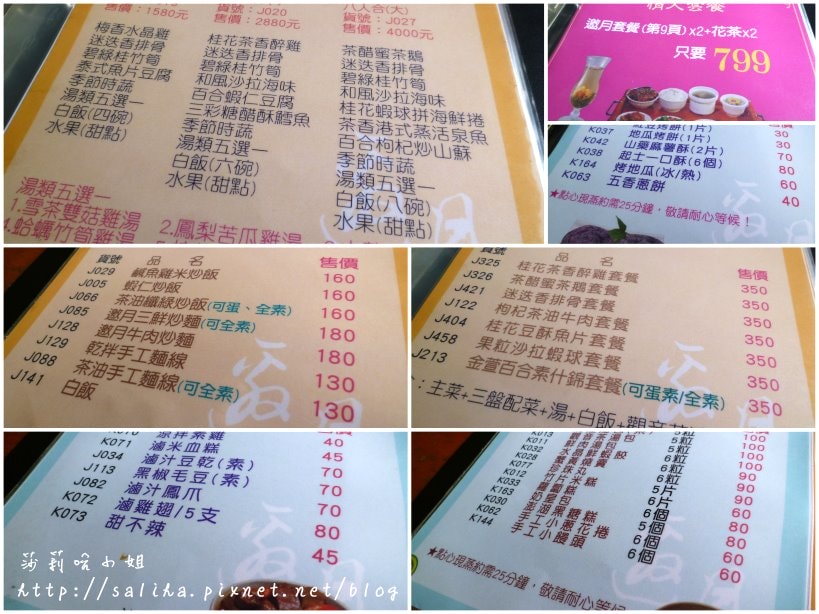 售價：1580元
貨號：J020
售價：2880元
八人合(大)
貨號：J027
售價：4000元
梅香水晶雞
迷迭香排骨
碧綠桂竹筍
泰式魚片豆腐
季節時蔬
湯類五選一
白飯(四碗)
水果(甜點)
桂花茶香醉雞
迷迭香排骨
碧綠桂竹筍
和風沙拉海味
百合蝦仁豆腐
三彩糖醋酥鱈魚
季節時蔬
湯類五選一
白飯(六碗)
水果(甜點)
茶醋蜜茶鵝
迷迭香排骨
碧綠桂竹筍
和風沙拉海味
桂花蝦球拼海鮮捲
茶香港式蒸活泉魚
百合枸杞炒山蘇
季節時蔬
湯類五選一
白飯(八碗)
水果(甜點)
湯類五選一
1.雪茶雙菇雞湯
2.鳳梨苦瓜雞湯
4.蛤蠣竹筍雞湯
邀月套餐(第9頁)x2+花茶x2
只要 799
K037 地瓜烤餅(1片) 30
K042 山藥麻薯酥(2片) 30
K038 起士一口酥(6個) 70
K164 烤地瓜(冰/熱) 80
K063 五香蔥餅 60
40
★點心現蒸約需25分鐘，敬請耐心等候！
貨號 品名 售價
J029 鹹魚雞米炒飯 160
J005 蝦仁炒飯 160
J066 茶油纖綠炒飯(可蛋、全素) 160
J085 邀月三鮮炒麵(可全素) 180
J128 邀月牛肉炒麵 180
J129 乾拌手工麵線 130
J088 茶油手工麵線(可全素) 130
J141 白飯
貨號 品名 售價
J325 桂花茶香醉雞套餐 350
J326 茶醋蜜茶鵝套餐 350
J421 迷迭香排骨套餐 350
J122 枸杞茶油牛肉套餐 350
J404 桂花豆酥魚片套餐 350
J458 果粒沙拉蝦球套餐 350
J213 金萱百合素什錦套餐(可蛋素/全素) 350
：主菜+三盤配菜+湯+白飯+觀音茶
涼拌素雞 40
K071 滷米血糕 45
J034 滷汁豆乾(素) 70
J113 黑椒毛豆(素) 70
J082 滷汁鳳爪 70
K072 滷雞翅/5支 80
K073 甜不辣 45
K013
K011
K032
K028
K077 珍珠丸
K012 竹片米糕
K033 蘿蔔糕
K163 奶皇包
K030
K062 手工小蔥花捲
K144 手工小饅頭
5粒
6粒
6粒
6粒
5片
6片
6個
6個
5個
6個
6個
100
100
100
90
90
60
80
80
60
60
★點心現蒸約需25分鐘，敬請耐心等候
莎莉哈小姐
http://saliha.pixnet.net/blog